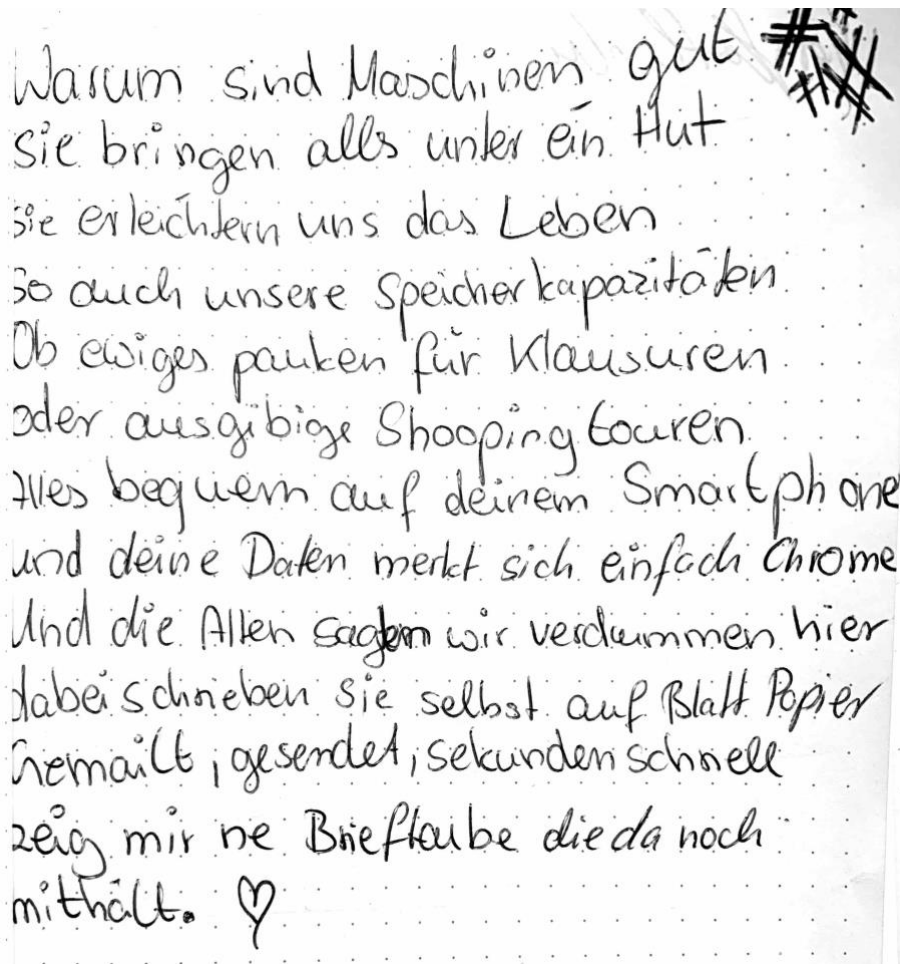 Warum sind Maschinen gut
Sie bringen alls unter ein Hut
sie erleichtern uns das Leben
So auch unsere Speicherkapazitäten
Ob ewiges pauken für Klausuren
oder ausgibige Shooping touren
Alles bequem auf deinem Smartphone
und deine Daten merkt sich einfach Chrome
Und die Alten sagen wir verdummen hier
dabei schrieben sie selbst auf Blatt Papier
Gemailt, gesendet, sekundenschnell
zeig mir ne Brieftaube die da noch
mithält. ♡